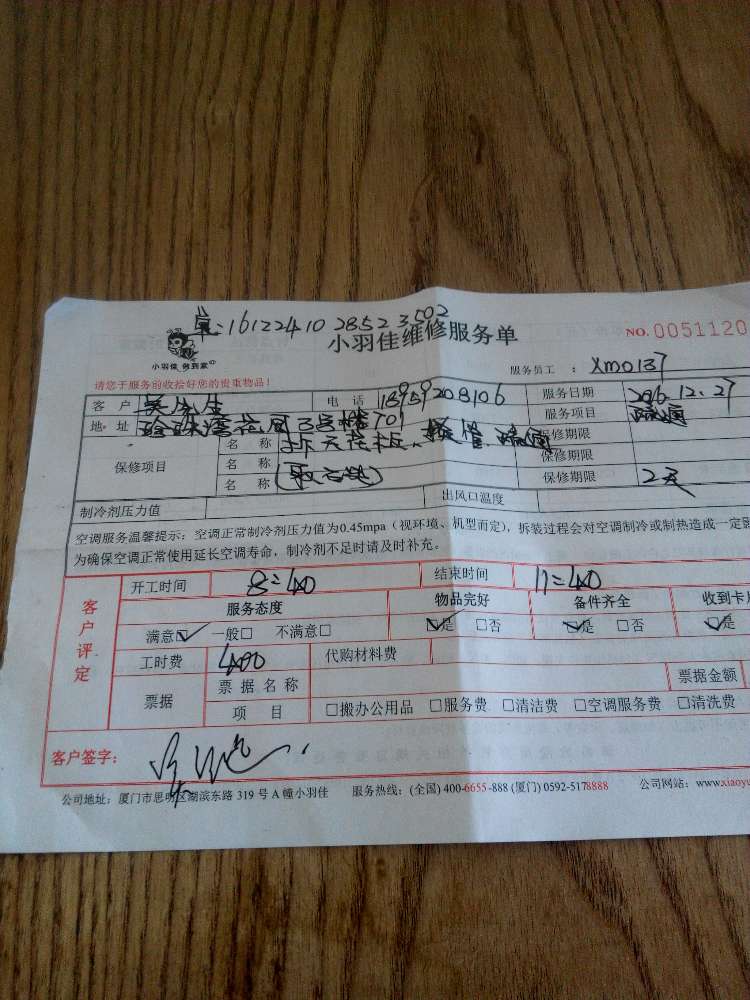 单:16122410 28523502
小羽佳维修服务单
NO.0051120
小羽佳 做到家
服务员工 : XM0137
请您于服务前收拾好您的贵重物品!
客 户 吴先生 电 话 18959208106 服务日期 2016.12.27
地 址 珍珠湾花园 3号楼701 服务项目
保修项目 名 称 拆天花板、 保修期限
名 称 保修期限
名 称 保修期限 2天
制冷剂压力值 出风口温度
空调服务温馨提示:空调正常制冷剂压力值为0.45mpa(视环境、机型而定),拆装过程会对空调制冷或制热造成一定
为确保空调正常使用延长空调寿命,制冷剂不足时请及时补充。
客户评定
开工时间 8:40 结束时间 11:40
服务态度 物品完好 备件齐全 收到卡
满意☑ 一般□ 不满意□ ☑是 □否 ☑是 □否 ☑是
工时费 400 代购材料费
票据 票 据 名 称 票据金额
项 目 □搬办公用品 □服务费 □清洁费 □空调服务费 □清洗费
客户签字:
公司地址:厦门市思明区湖滨东路 319 号 A 幢小羽佳 服务热线:(全国) 400-6655-888 (厦门) 0592-5178888 公司网站:www.xiaoyu